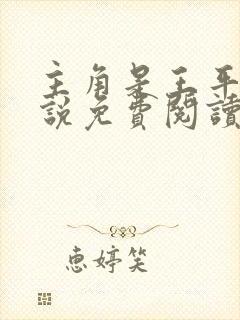 主角是王平
說免費閱讀
惠婷笑